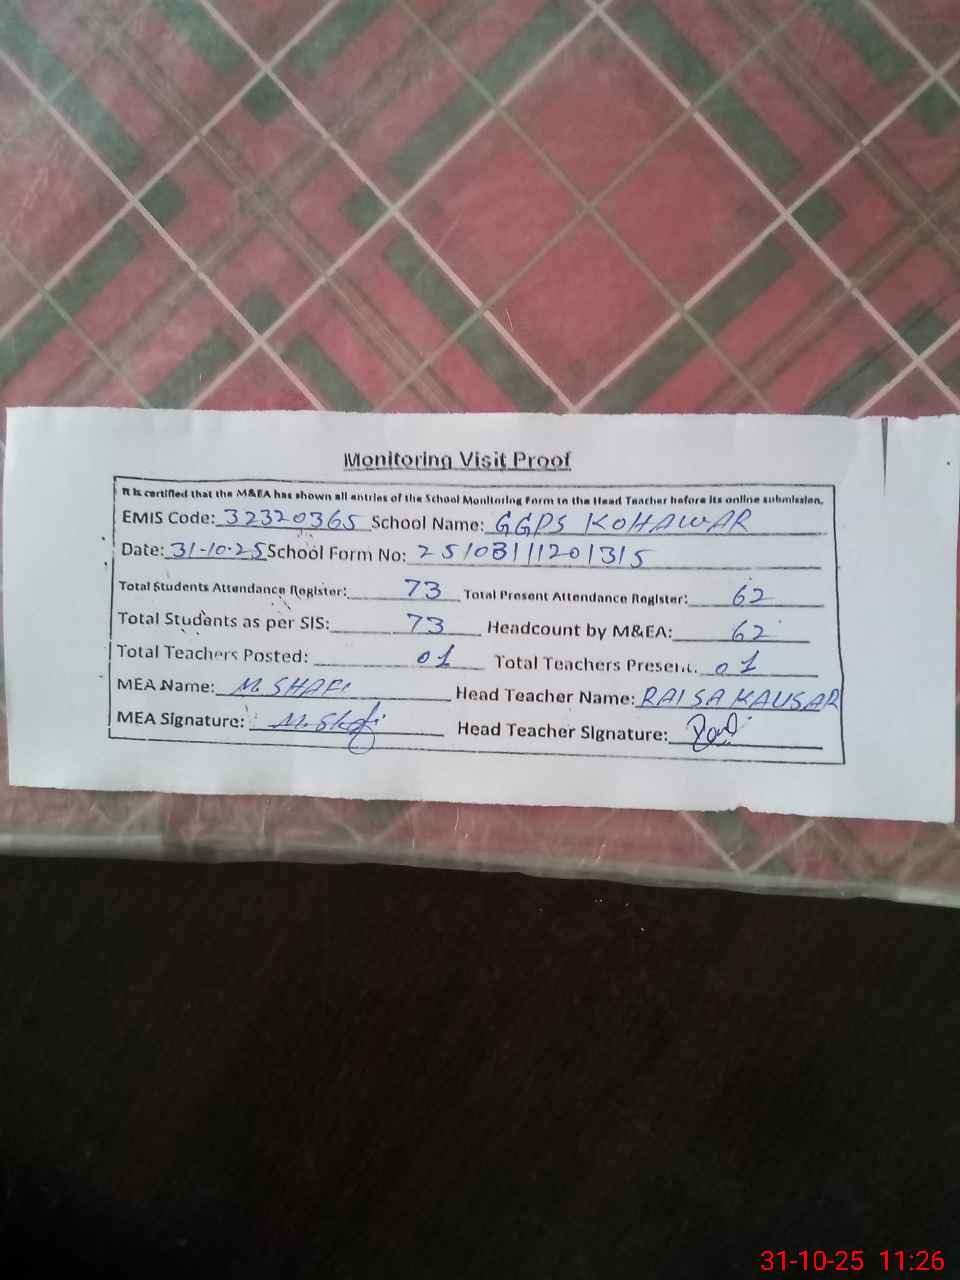 Monitoring Visit Proof
It is certified that the M&EA has shown all entries of the School Monitoring Form to the Head Teacher before its online submission.
EMIS Code: 32320365 School Name: GGPS KOHAWAR
Date: 31-10-25 School Form No: 25103111201315
Total Students Attendance Register: 73 Total Present Attendance Register: 62
Total Students as per SIS: 73 Headcount by M&EA: 62
Total Teachers Posted: 01 Total Teachers Present: 01
MEA Name: M. SHAFI Head Teacher Name: RAISA KAUSAR
MEA Signature: M. Shafi Head Teacher Signature:
31-10-25 11:26